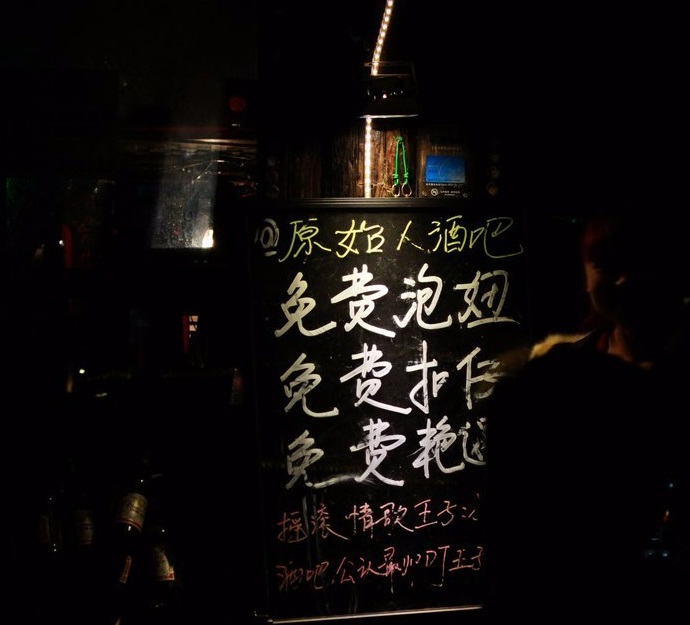 @原始人酒吧
免费泡妞
免费扣仔
免费艳遇
摇滚情歌王子
酒吧公认最帅DJ王子